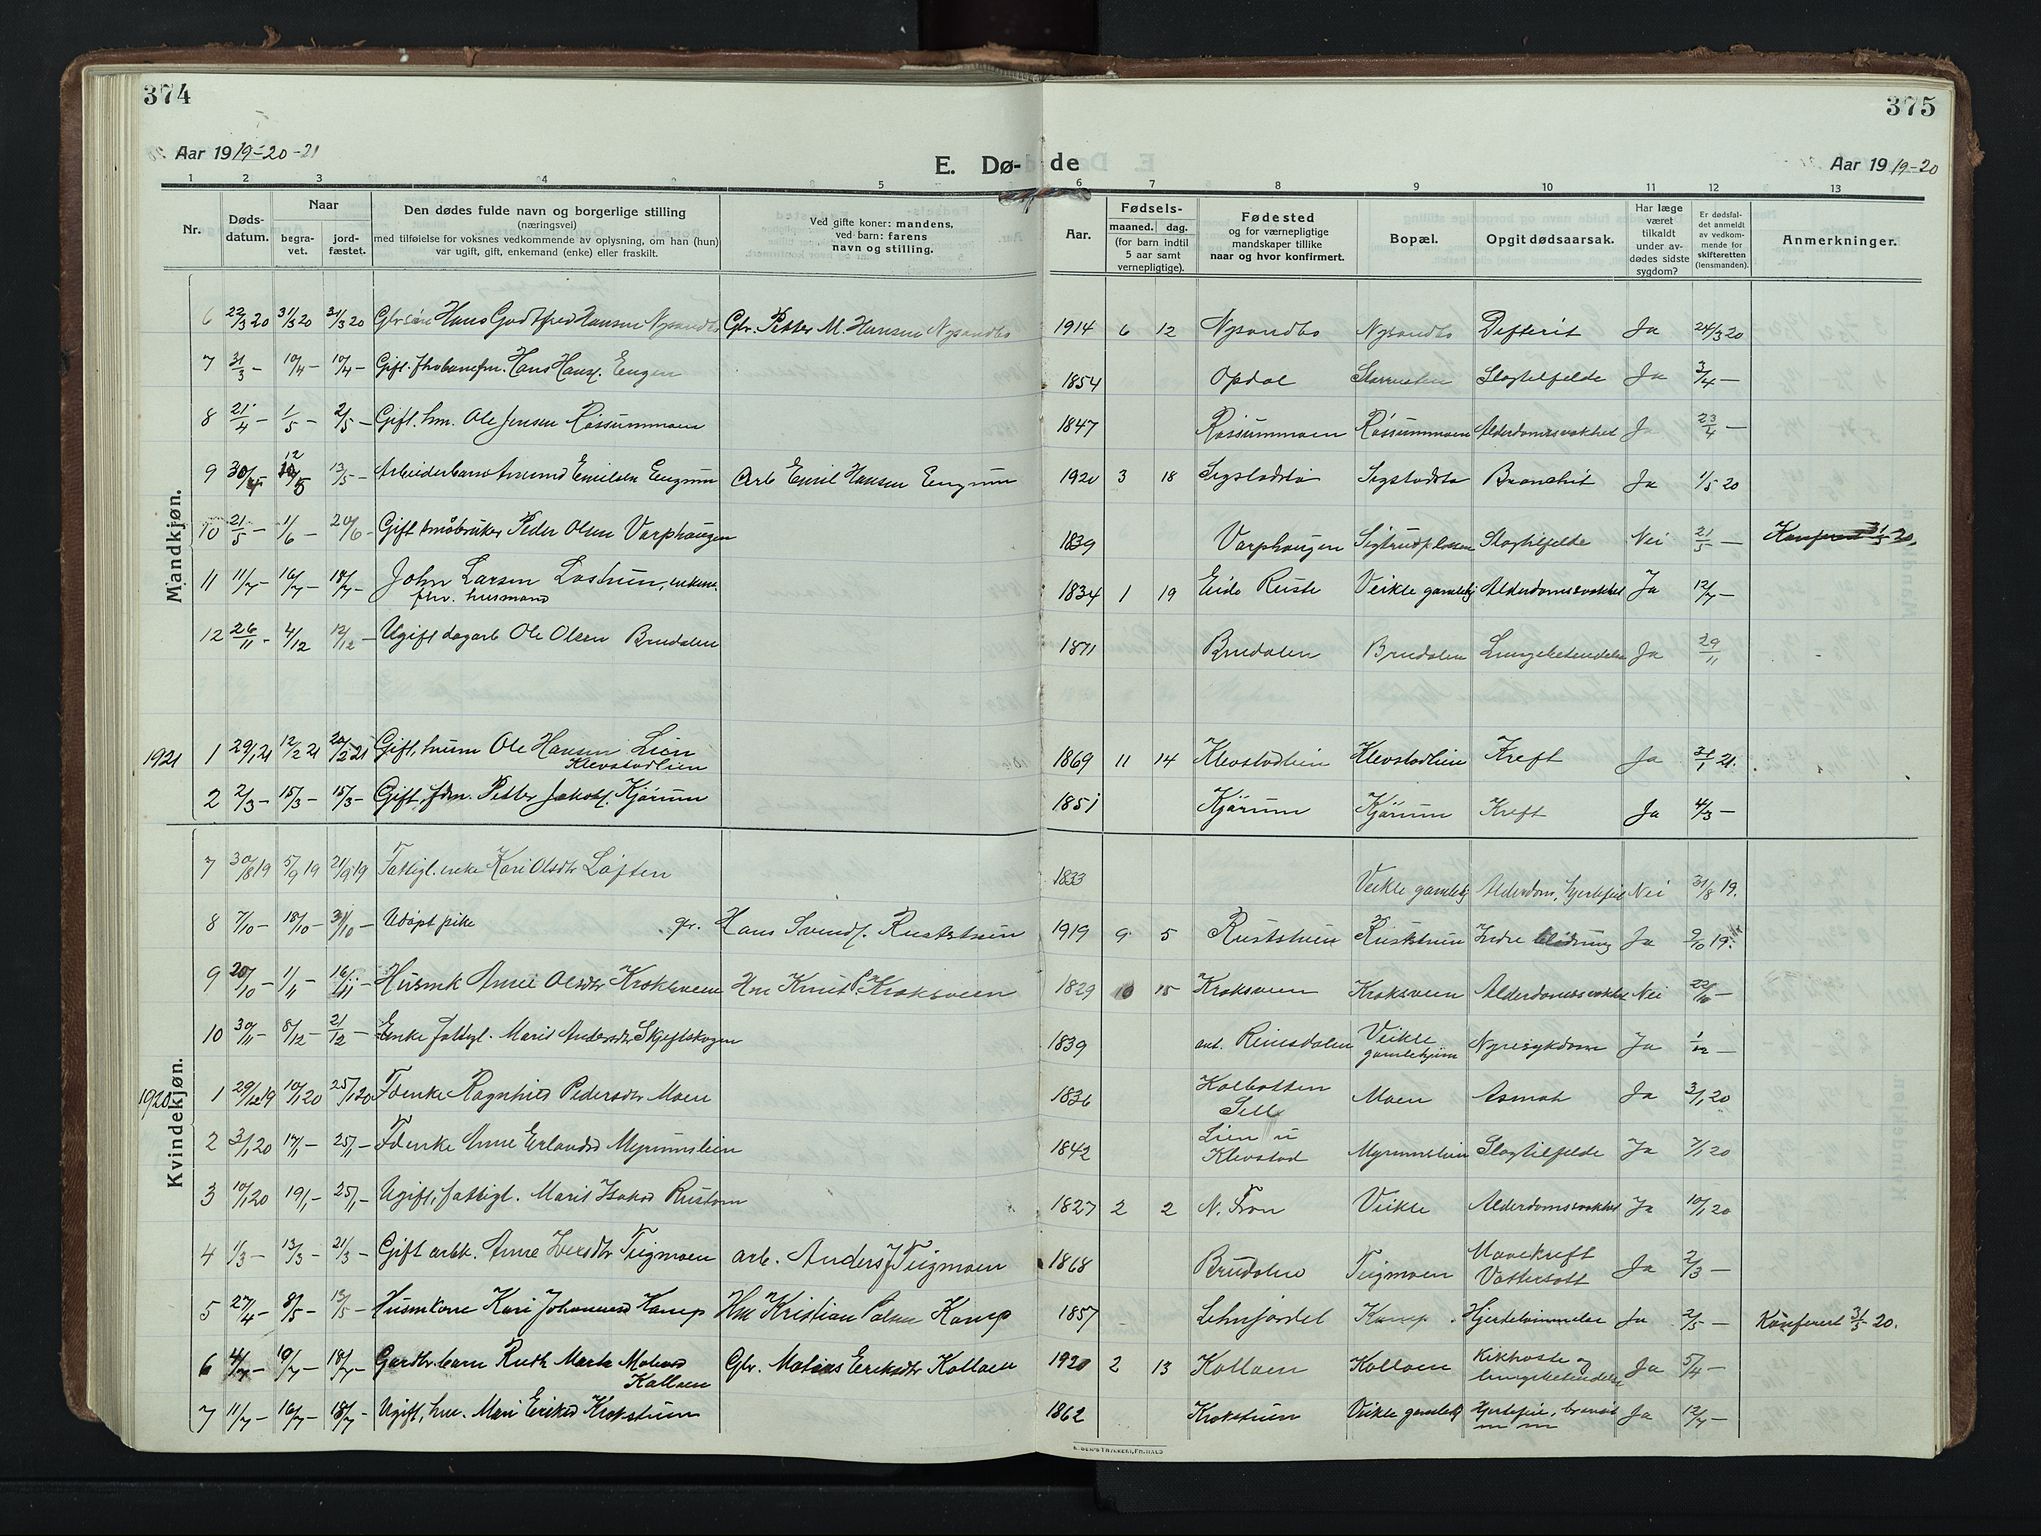 374
375
Aar 1919-20-21
E. Dø- de
Aar 1919-20
1 2 3 4 5 6 7 8 9 10 11 12 13
Nr.
Døds-
datum.
Naar
begra-
vet.
jord-
fæstet.
Den dødes fulde navn og borgerlige stilling
(næringsvei)
med tilføielse for voksnes vedkommende av oplysning, om han (hun)
var ugift, gift, enkemand (enke) eller fraskilt.
Ved gifte koner: mandens,
ved barn: farens
navn og stilling.
Aar.
Fødsels-
maaned. dag.
(for barn indtil
5 aar samt
vernepligtige).
Fødested
og for værnepligtige
mandskaper tillike
naar og hvor konfirmert.
Bopæl.
Opgit dødsaarsak.
Har læge
været
tilkaldt
under av-
dødes sidste
sygdom?
Er dødsfal-
det anmeldt
av vedkom-
mende for
skifteretten
(lensmanden).
Anmerkninger.
Mandkjøn.
6 22/3 20 31/3 20 31/3 20 Gbr søn Hans Godtfred Hansen Nysandbo Gbr. Petter M. Hansen Nysandbo 1914 6 12 Nysandbo Nysandbo Defterit Ja 24/3 20
7 31/3 - 10/4 - 10/4 - Gift. Hans Hans. Engen 1854 Opdal Slagtilfelde Ja 3/4 -
8 21/4 - 1/5 - 2/5 - Gift. hm. Ole Jensen Røssummoen 1847 Røssummoen Røssummoen Alderdomssvakhet Ja 23/4 -
9 30/4 - 12/5 13/5 - Arbeiderbarn Amund Emilsen Engum Arb Emil Hansen Engum 1920 3 18 Sygstadstø Sygstadstø Bronchit Ja 1/5 20
10 21/5 - 1/6 - 20/6 - Gift småbruker Peder Olsen Varphaugen 1839 Varphaugen Slagtilfelde Nei 21/5 - Konferert 31/5 20.
11 11/7 - 16/7 - 18/7 - John Larsen Løstuen, enkem.
fhv. husmand 1834 1 19 Eide Ruste Veikle gamlehj Alderdomssvakhet Ja 12/7 -
12 26/11 - 4/12 12/12 - Ugift dagarb Ole Olsen Brudalen 1871 Brudalen Brudalen Lungebetendelse Ja 29/11
1921 1 29/1 21 12/2 21 20/2 21 Gift, husm Ole Hansen Lien
Klevstadlien 1869 11 14 Klevstadlien Klevstadlien Kreft Ja 31/1 21.
2 2/3 - 15/3 - 15/3 - Gift, fdm. Petter Jakobs. Kjørum 1851 Kjørum Kjørum Kreft Ja 4/3 -
Kvindekjøn.
7 30/8 19 5/9 19 21/9 19 Fattigl. enke Kari Olsdtr Løften 1833 Veikle gamlehj Alderdom, hjertefeil Nei 31/8 19.
8 7/10 - 18/10 - 31/10 - Udøpt pike gr. Hans Svends. Ruststuen 1919 9 5 Ruststuen Ruststuen Indre blødning Ja 9/10 19.
9 20/10 - 1/11 - 16/11 - Husmk Anne Olsdtr Kroksveen Hm Knut P. Kroksveen 1829 10 15 Kroksveen Kroksveen Alderdomssvakhet Nei 22/10 -
10 30/11 - 8/12 - 21/12 - Enke fattigl. Marit Andersdtr Skjeftskogen 1839 ant. Reinsdalen Veikle
gamlehjem Nyresykdom Ja 1/12 -
1920 1 29/12 19 10/1 20 25/1 20 Fdenke Ragnhild Pedersdtr Moen 1836 Kolbotten
Sell Moen Asmah Ja 3/1 20
2 3/1 20 17/1 - 25/1 - Fdenke Anne Erlandsd Myrumslien 1842 Lien u
Klevstad Myrumslien Slagtilfelde Ja 7/1 20
3 10/1 20 19/1 - 25/1 - Ugift, fattigl. Marit Isaksd Rustom 1827 2 2 N. Fron Veikle Alderdomssvakhet Ja 10/1 20
4 1/3 - 13/3 - 21/3 - Gift arbk. Anne Iversdtr Tiigmoen arb. Anders J Tiigmoen 1868 Brudalen Tiigmoen Mavekreft
Vattersott Ja 2/3 -
5 27/4 - 8/5 - 13/5 - Husmkone Kari Johannesd Kamp Hm Kristian Palsen Kamp 1857 Kamp Hjertelammelse Ja 2/5 - Konferert 31/5 20.
6 4/7 - 10/7 - 18/7 - Gardbr. barn Ruth Marta Matiasd
Kolloen Gbr. Matias Eriksdtr Kolloen 1920 2 13 Kolloen Kolloen Kikhoste og
lungebetendelse Ja 5/4 -
7 11/7 - 16/7 - 18/7 - Ugift, hm. Mari Eriksd Krokstuen 1862 Krokstuen Veikle gamlehj Hjertefeil, Ja 12/7 -